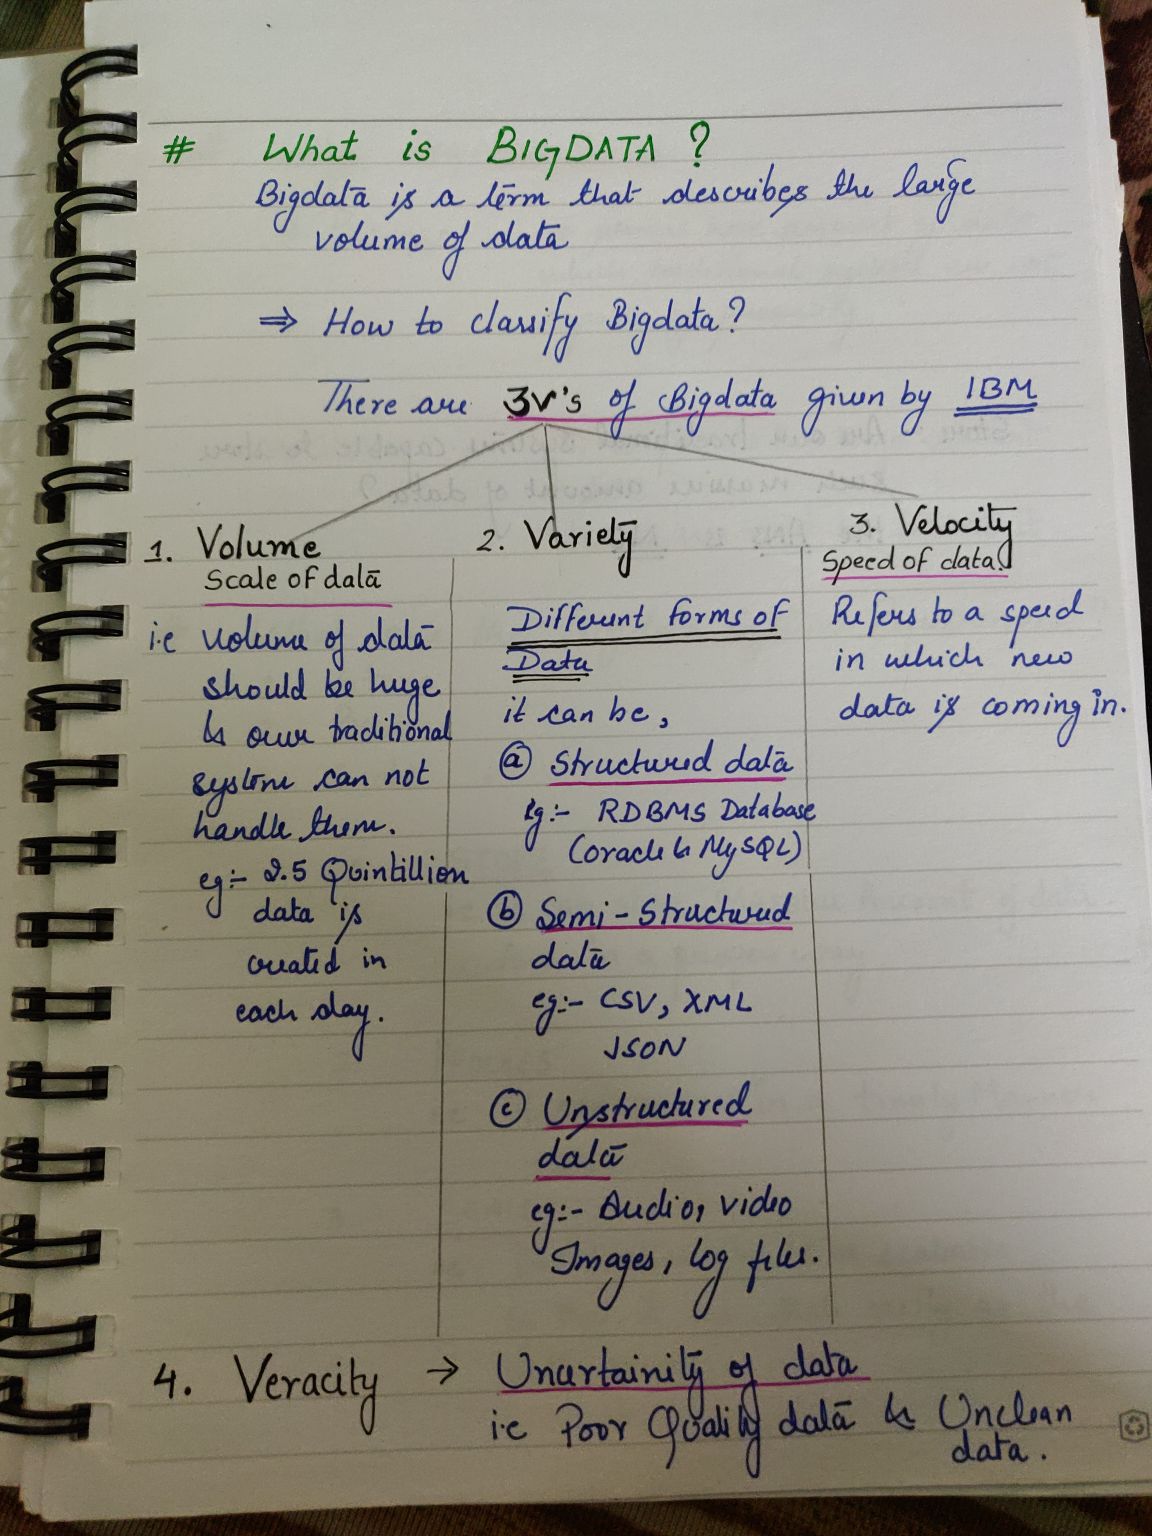 # What is BIGDATA ?
Bigdata is a term that describes the large
volume of data
⇒ How to classify Bigdata?
There are 3V's of Bigdata given by IBM
1. Volume
Scale of data
i.e volume of data
should be huge
& our traditional
system can not
handle them.
eg:- 2.5 Quintillion
data is
created in
each day.
2. Variety
Different forms of
Data
it can be,
(a) Structured data
Eg:- RDBMS Database
(oracle & MySQL)
(b) Semi-Structured
data
eg:- CSV, XML
JSON
(c) Unstructured
data
eg:- Audio, video
Images, log files.
3. Velocity
Speed of data.
Refers to a speed
in which new
data is coming in.
4. Veracity → Uncertainity of data
i.e Poor Quality data & Unclean
data.